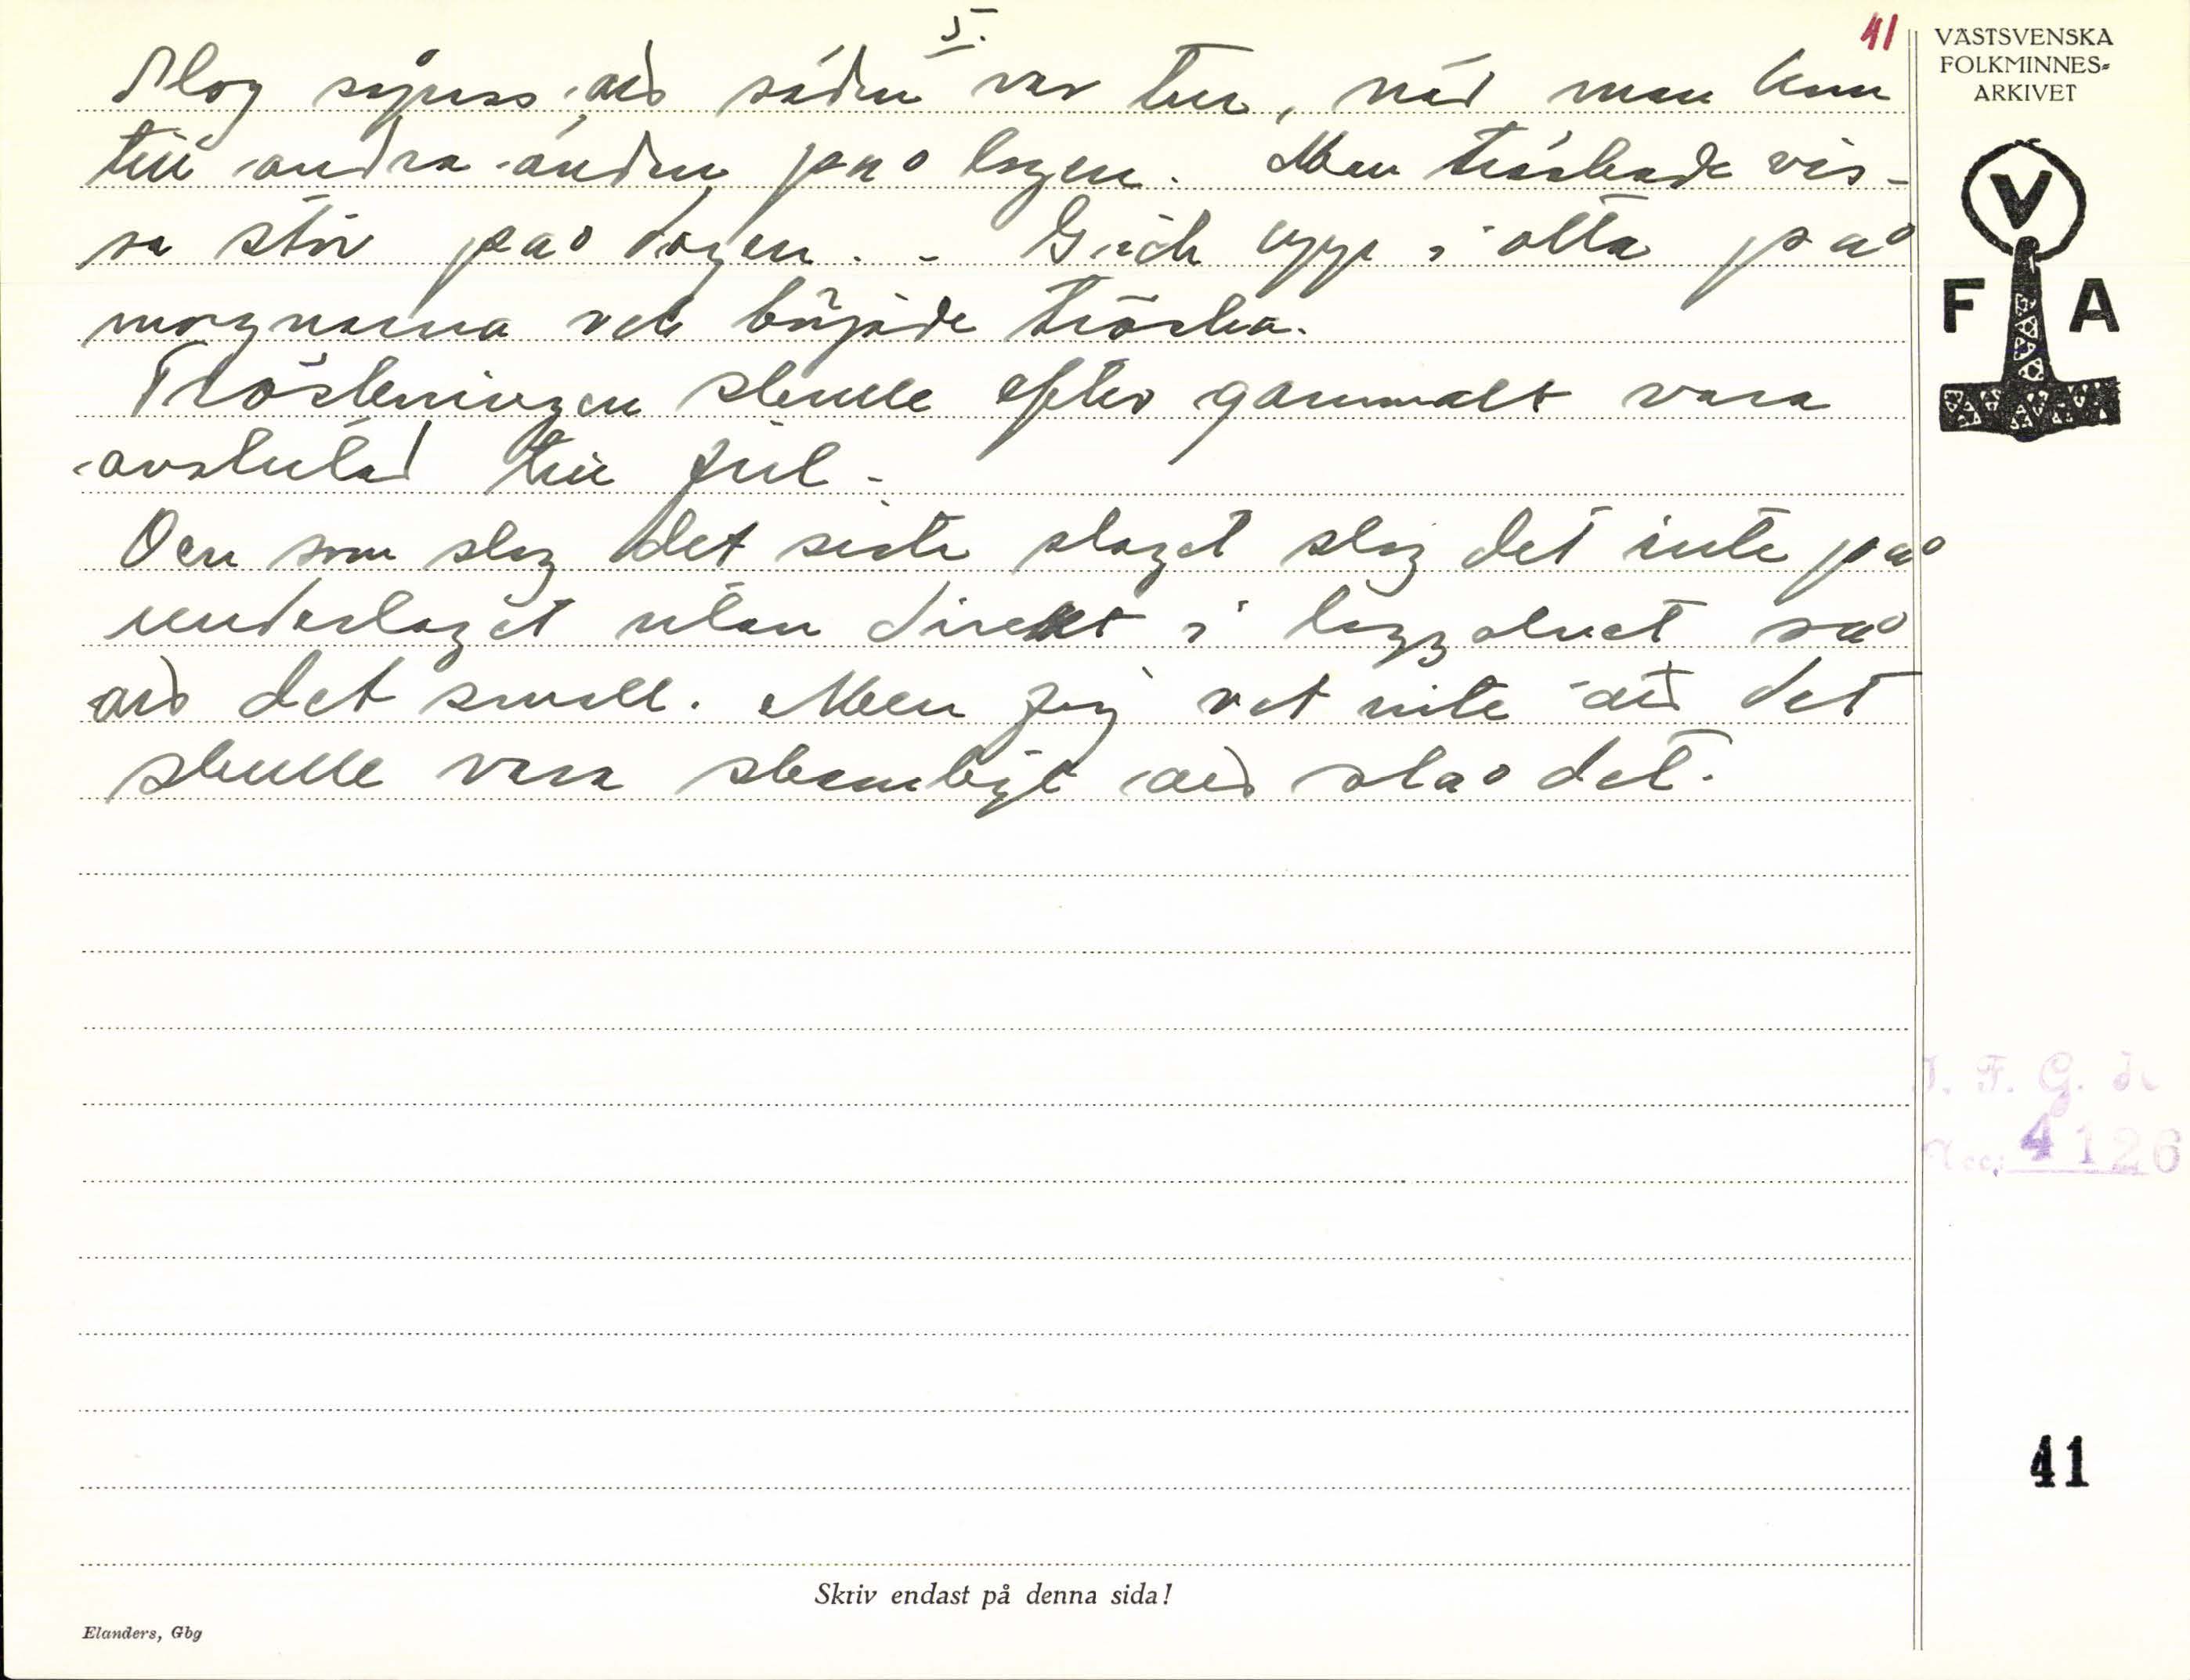 5.
41
slog sájuss att säden var ten, när man kom
till andra änden på logen. Man tröskade vis-
sa stör på dagen. - Gick upp i otta på
morgnarna och började tröska.
Tröskningen skulle efter gammalt vara
avslutad till jul -
Den som slog det sista slaget slog det inte på
underlaget utan direkt i loggolvet så
att det small. Men jag vet inte att det
skulle vara skamligt att slå det.
VÄSTSVENSKA
FOLKMINNES-
ARKIVET
V
F A
I. F. G. H
Acc. 4126
41
Skriv endast på denna sida!
Elanders, Gbg